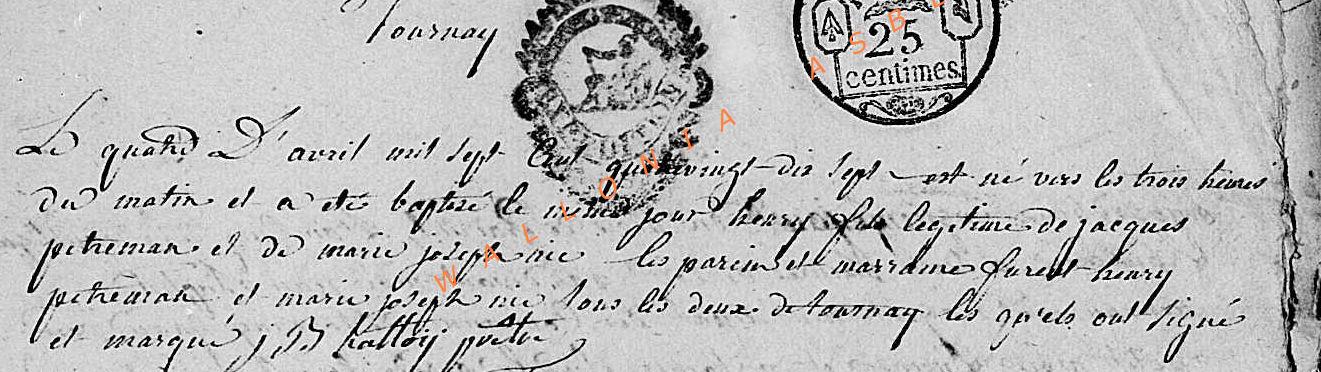 Tournay
25
centimes.
WALLONIA ASBL
Le quatre D'avril mil sept Cent quatrevingt dix sept est né vers les trois heures
du matin et a été baptisé le même jour henry fils legitime de jacques
petreman et de marie joseph nie les parein et marraine furent henry
petreman et marie joseph nie tous les deux de tournay les qu'els ont signé
et marqué j B hattoij prêtre